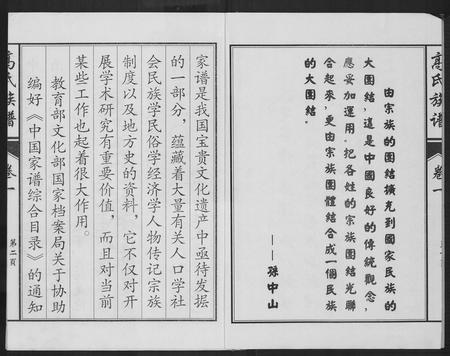 由宗族的團結擴充到國家民族的
大團結，這是中國良好的傳統觀念，
應妥加運用。把各姓的宗族團結先聯
合起來，更由宗族團體結合成一個民族
的大團結。
——孫中山
高氏族譜
卷一
家谱是我国宝贵文化遗产中亟待发掘
的一部分，蕴藏着大量有关人口学社
会民族学民俗学经济学人物传记宗族
制度以及地方史的资料，它不仅对开
展学术研究有重要价值，而且对当前
某些工作也起着很大作用。
教育部文化部国家档案局关于协助
编好《中国家谱综合目录》的通知
高氏族譜
卷一
第二頁